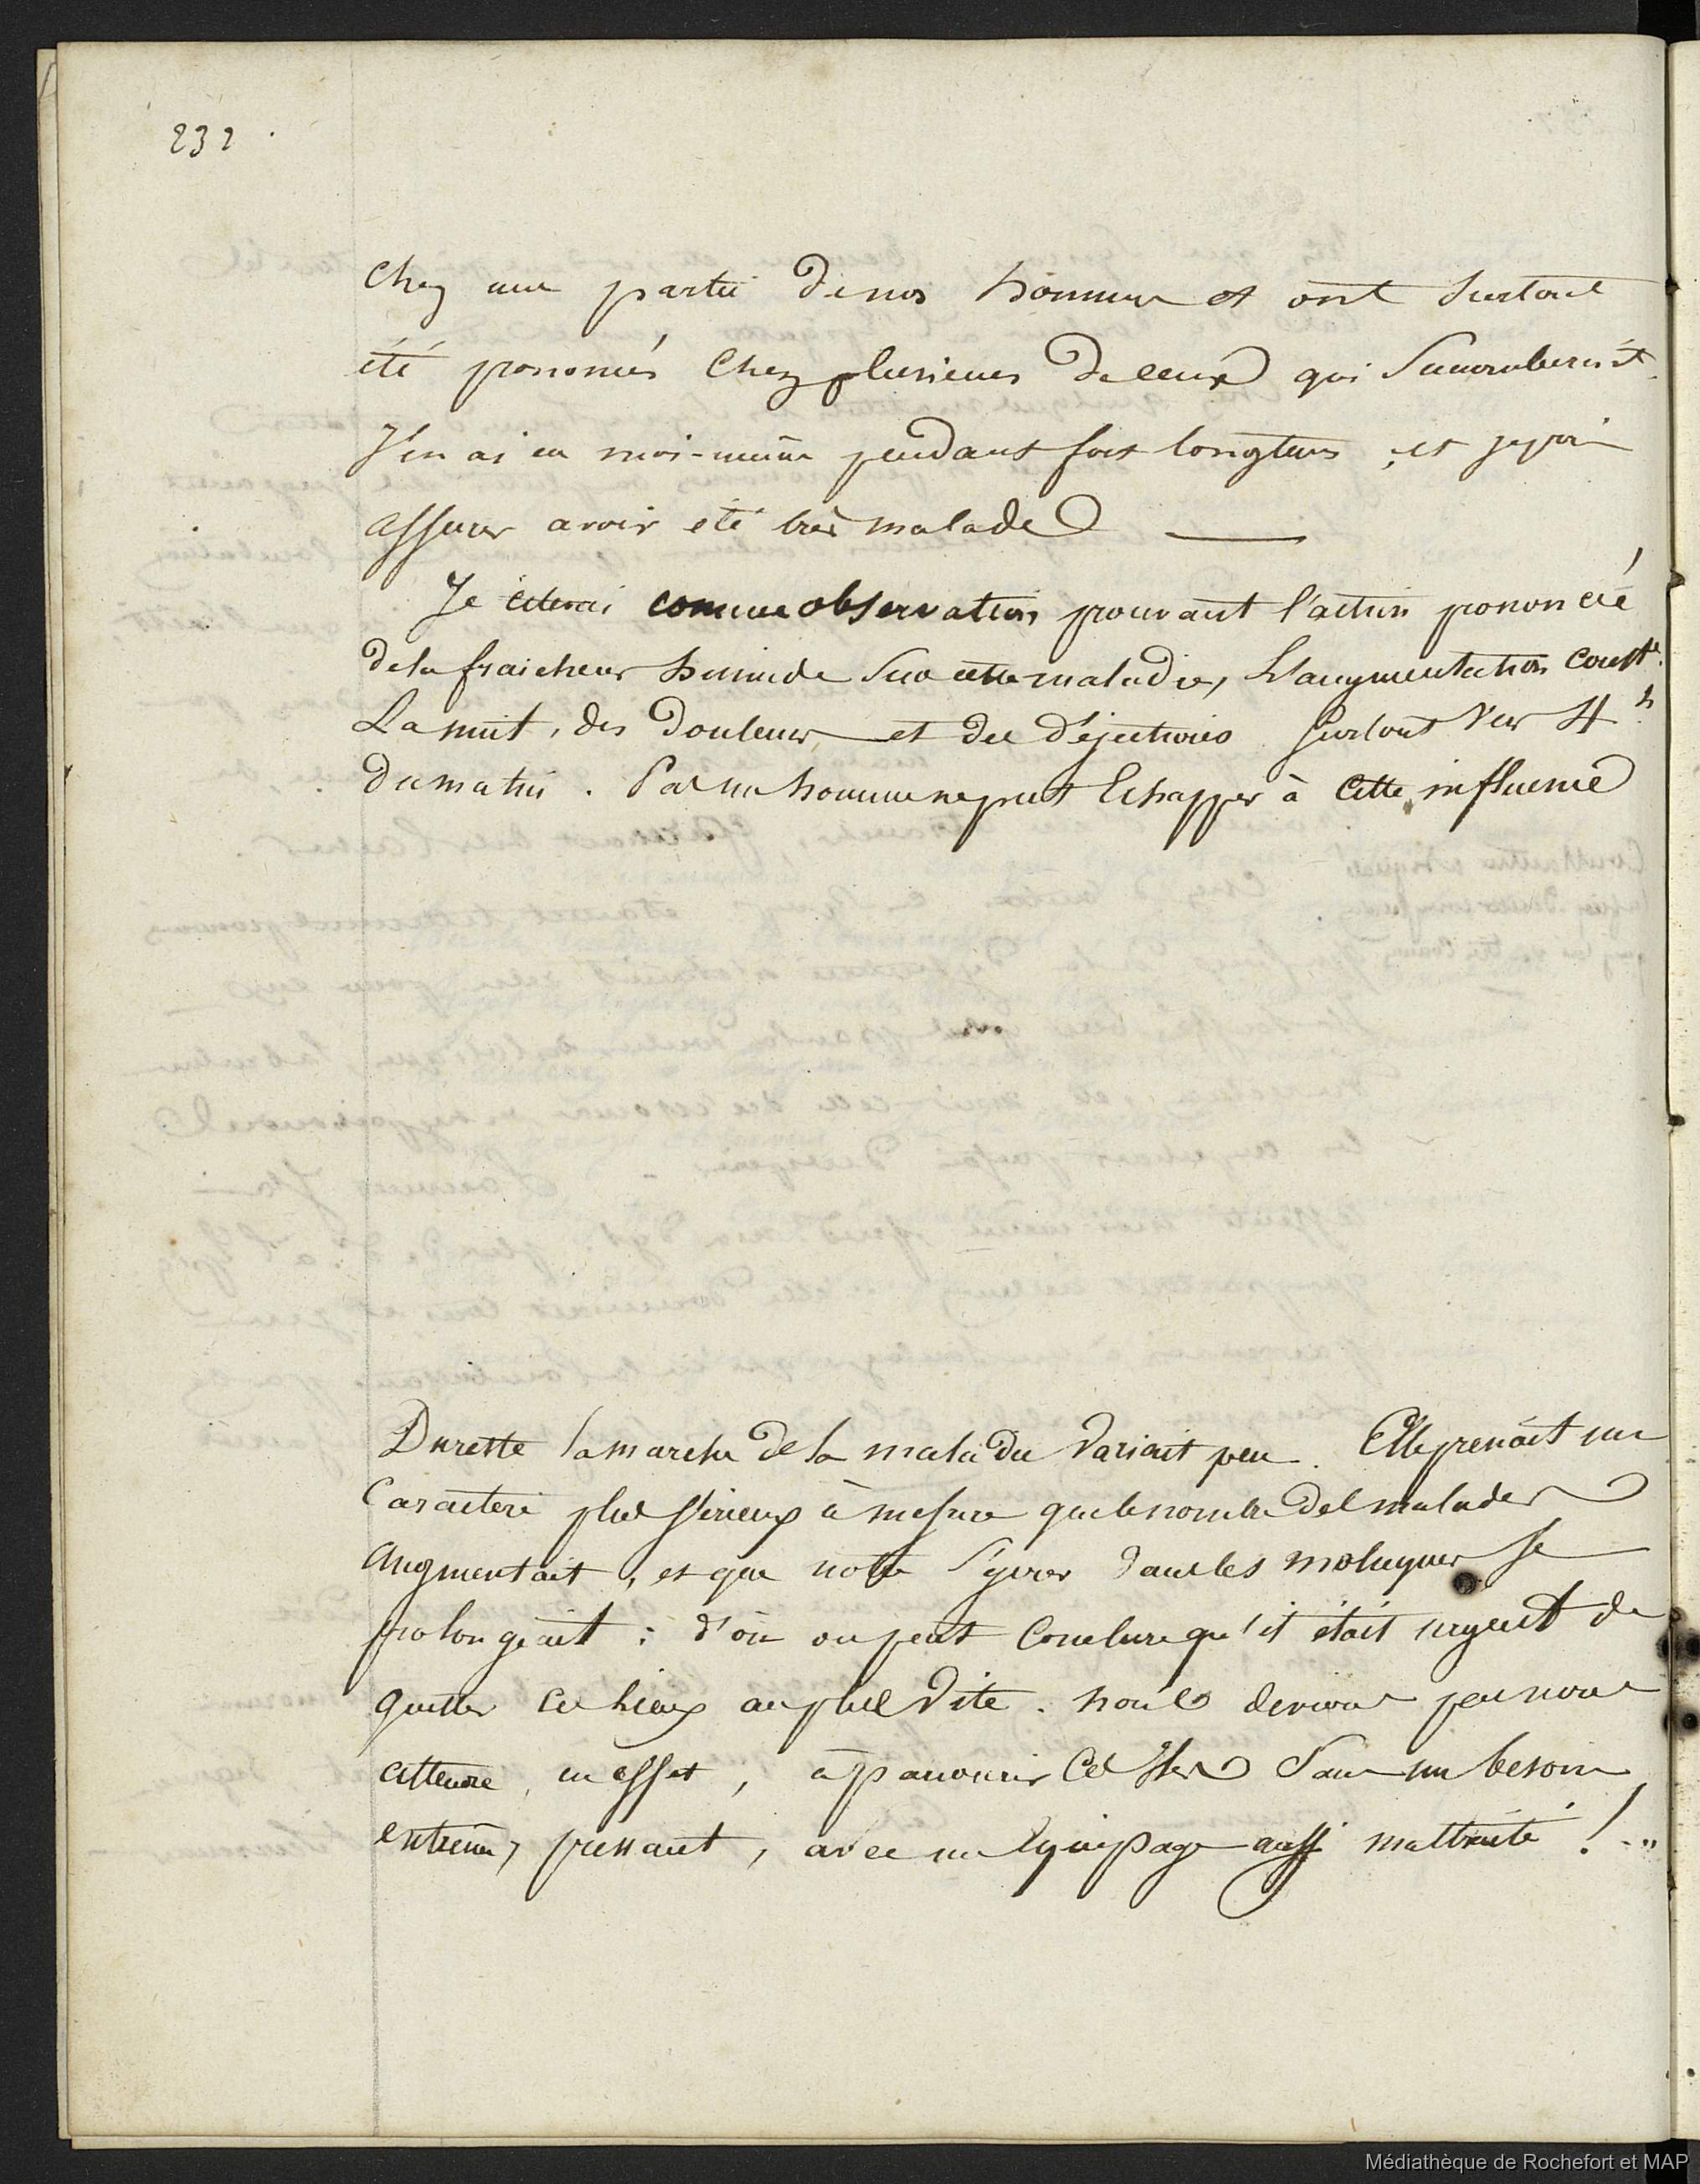 232.
Chez une partie de nos hommes et ont surtout
été prononcés chez plusieurs de ceux qui succombèrent.
J'en ai eu moi-même pendant fort longtems, et je puis
assurer avoir été très malade ——
Je citerai comme observation prouvant l'action prononcée
de la fraicheur humide sur cette maladie, L'augmentation constte.
La nuit, des Douleurs et des déjections surtout vers 4 h.
du matin. Pas un homme ne put Echapper à Cette influence
Dureste la marche de la maladie variait peu. Elle prenait un
Caractère plus sérieux à mesure que le nombre des malades
augmentait, et que notre séjour dans les moluques se
prolongeait : d'où on peut Conclure qu'il était urgent de
quitter ces lieux au plus vite. nous devions peu nous
attendre, en effet, à parcourir Ces Iles sans un besoin
extrême, pressant, avec un Equipage aussi maltraité !..."
Médiathèque de Rochefort et MAP